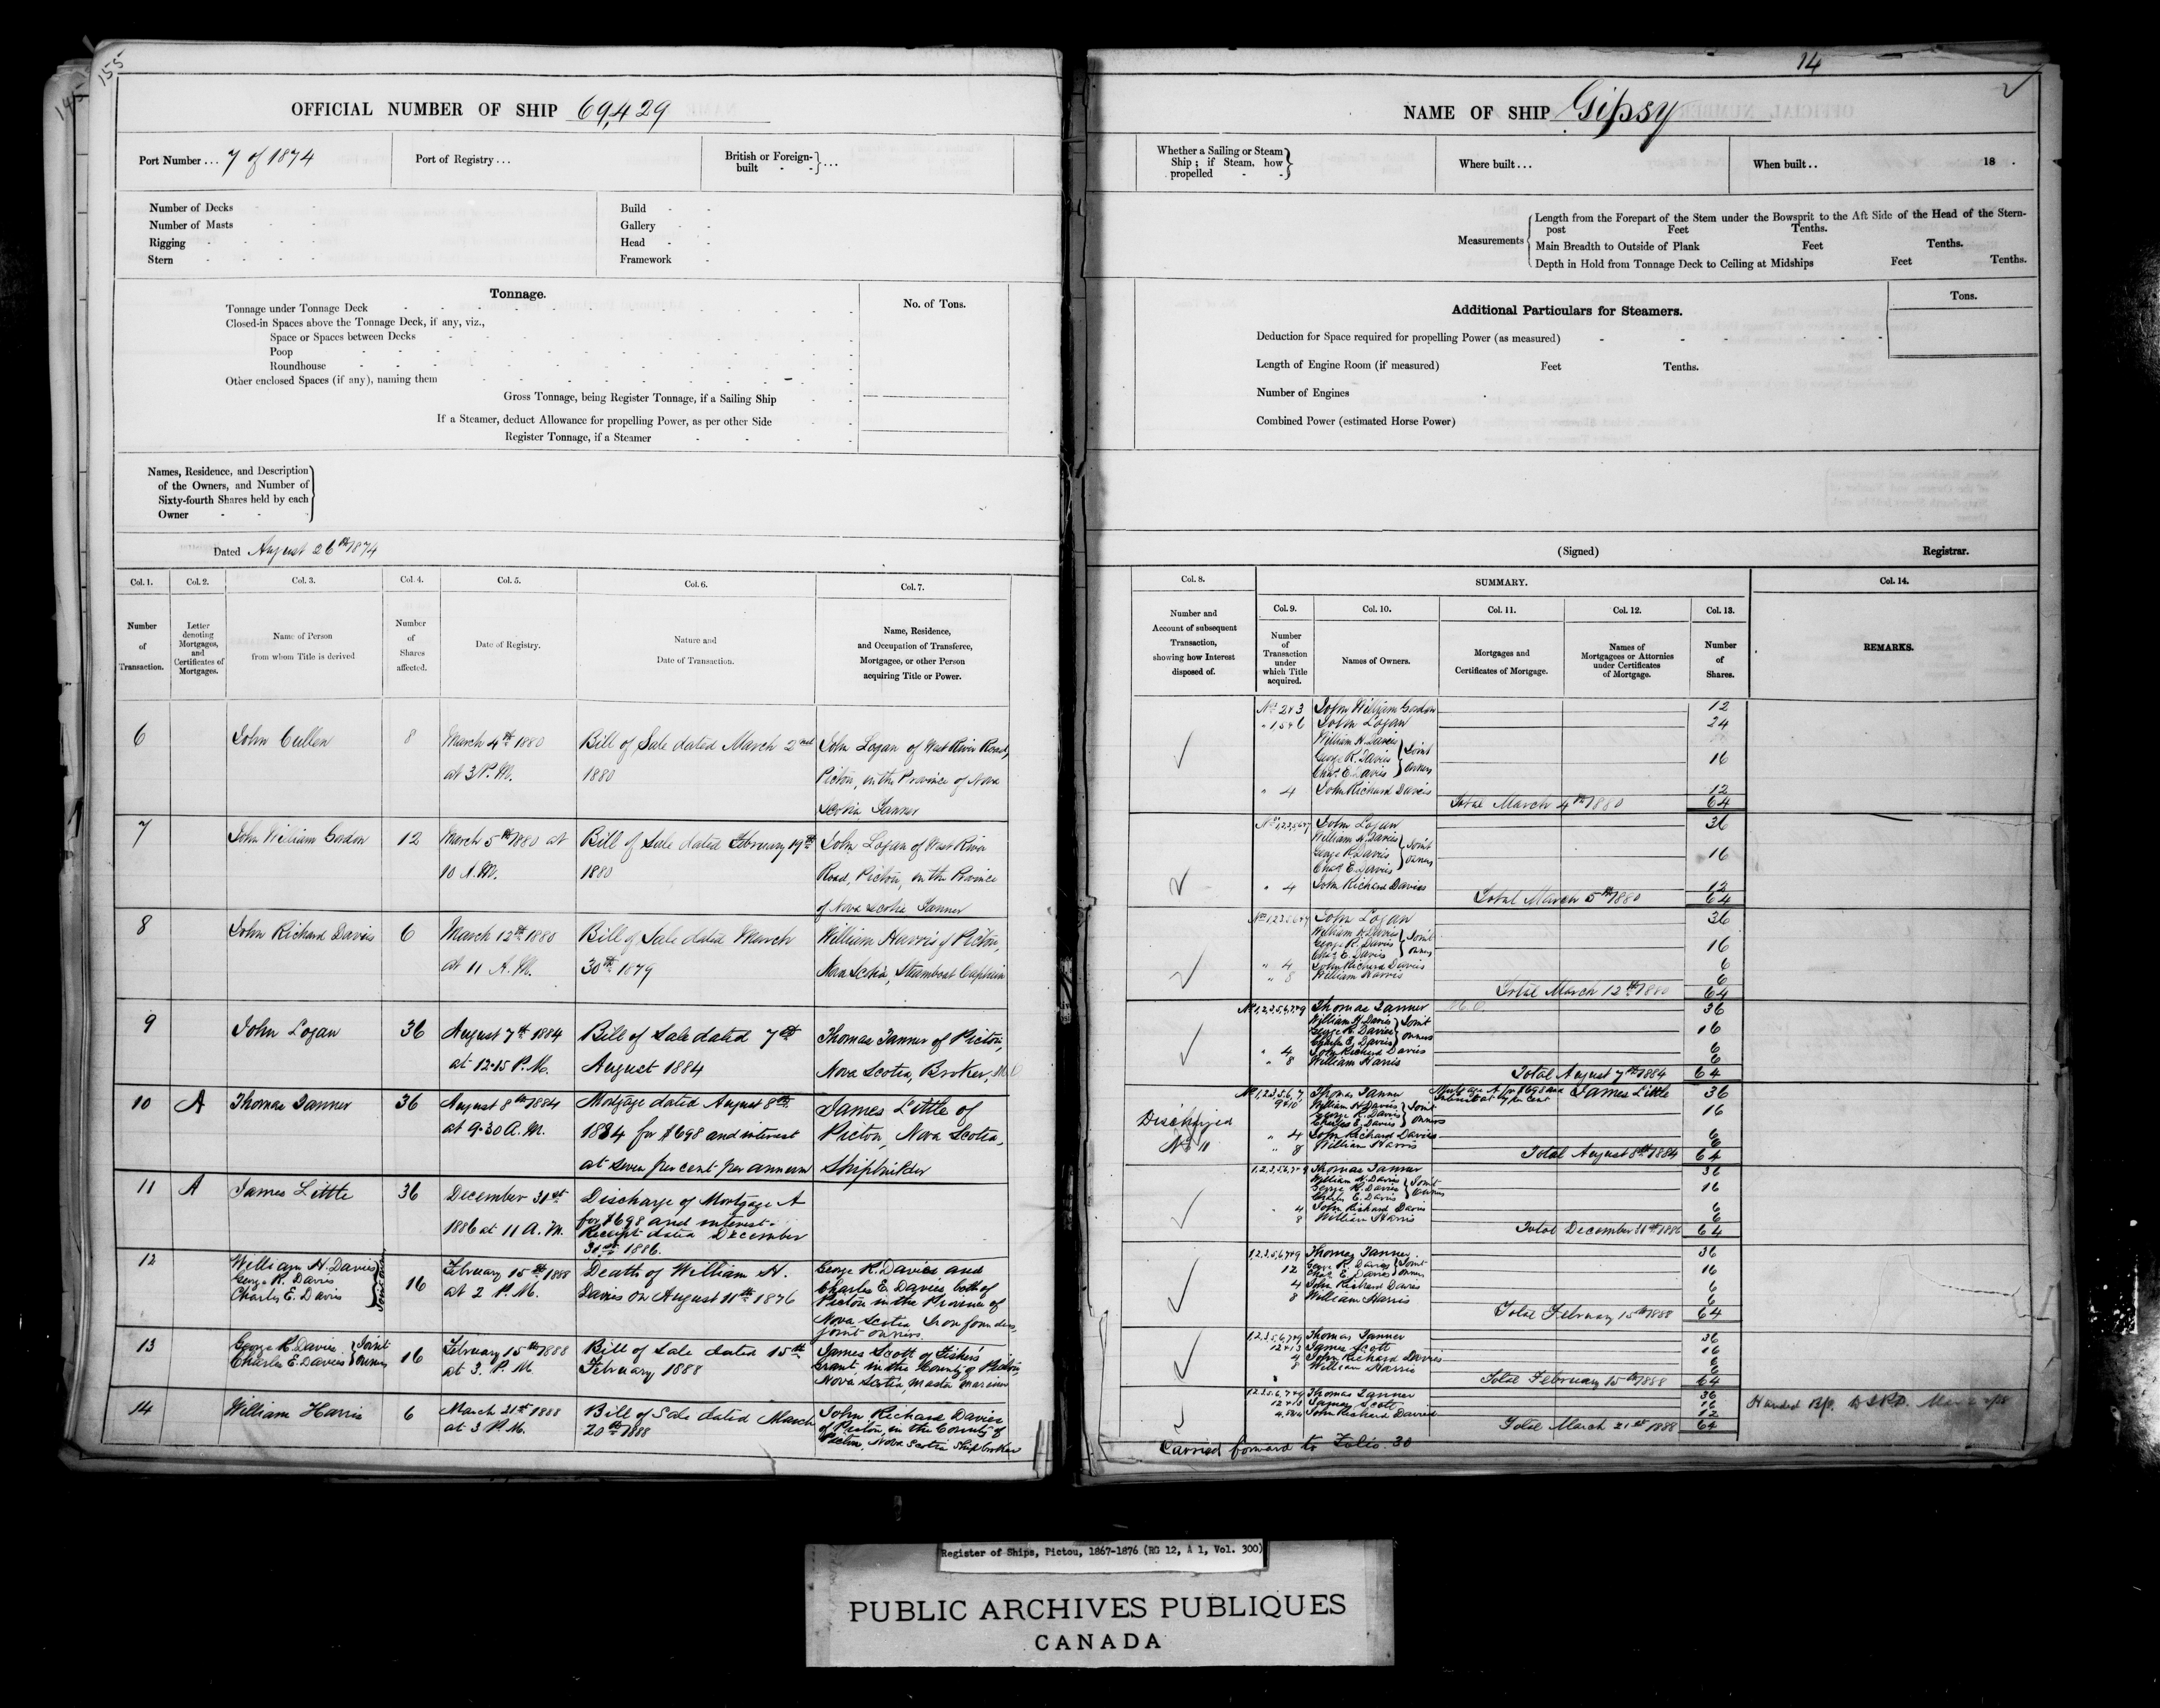 155
145
OFFICIAL NUMBER OF SHIP 69,429
Port Number ... 7 of 1874
Port of Registry ...
British or Foreign-built - - } ...
Number of Decks
Number of Masts
Rigging
Stern
Build
Gallery
Head
Framework
Tonnage.
No. of Tons.
Tonnage under Tonnage Deck
Closed-in Spaces above the Tonnage Deck, if any, viz.,
Space or Spaces between Decks
Poop
Roundhouse
Other enclosed Spaces (if any), naming them
Gross Tonnage, being Register Tonnage, if a Sailing Ship
If a Steamer, deduct Allowance for propelling Power, as per other Side
Register Tonnage, if a Steamer
Names, Residence, and Description
of the Owners, and Number of
Sixty-fourth Shares held by each
Owner
Dated August 26th 1874
Col. 1. Col. 2. Col. 3. Col. 4. Col. 5. Col. 6. Col. 7.
Number of Transaction.
Letter denoting Mortgages, and Certificates of Mortgages.
Name of Person from whom Title is derived
Number of Shares affected.
Date of Registry.
Nature and Date of Transaction.
Name, Residence, and Occupation of Transferee, Mortgagee, or other Person acquiring Title or Power.
6 John Cullen 8 March 4th 1880 Bill of Sale dated March 2nd John Logan of West River Road,
at 3 P.M. 1880 Pictou, in the Province of Nova
Scotia Tanner
7 John William Gordon 12 March 5th 1880 at Bill of Sale dated February 19th John Logan of West River
10 A.M. 1880 Road, Pictou, in the Province
of Nova Scotia Tanner
8 John Richard Davies 6 March 12th 1880 Bill of Sale dated March William Harris of Pictou,
at 11 A.M. 30th 1879 Nova Scotia, Steamboat Captain
9 John Logan 36 August 7th 1884 Bill of Sale dated 7th Thomas Tanner of Pictou,
at 12.15 P.M. August 1884 Nova Scotia, Broker, M.O
10 A Thomas Tanner 36 August 8th 1884 Mortgage dated August 8th James Little of
at 9.30 A.M. 1884 for $698 and interest Pictou, Nova Scotia,
at seven per cent per annum Shipbuilder
11 A James Little 36 December 31st Discharge of Mortgage A
1886 at 11 A.M. for $698 and interest.
Receipt dated December
31st 1886.
12 William H. Davies
George R. Davies
Charles E. Davis
} Joint Owners 16 February 15th 1888 Death of William H. George R. Davies and
at 2 P.M. Davies on August 11th 1876 Charles E. Davies, both of
Pictou in the Province of
Nova Scotia Iron founders,
joint owners
13 George R. Davies
Charles E. Davies
} Joint Owners 16 February 15th 1888 Bill of Sale dated 15th James Scott of Fisher's
at 3. P.M. February 1888 Grant in the County of Pictou
Nova Scotia, Master Mariner
14 William Harris 6 March 21st 1888 Bill of Sale dated March John Richard Davies
at 3 P.M. 20th 1888 of Pictou, in the County of
Pictou, Nova Scotia Shipbroker
14
NAME OF SHIP Gipsy
Whether a Sailing or Steam
Ship; if Steam, how
propelled
Where built ...
When built .. 18 .
Measurements
Length from the Forepart of the Stem under the Bowsprit to the Aft Side of the Head of the Stern-
post Feet Tenths.
Main Breadth to Outside of Plank Feet Tenths.
Depth in Hold from Tonnage Deck to Ceiling at Midships Feet Tenths.
Additional Particulars for Steamers.
Tons.
Deduction for Space required for propelling Power (as measured)
Length of Engine Room (if measured) Feet Tenths.
Number of Engines
Combined Power (estimated Horse Power)
(Signed) Registrar.
Col. 8. SUMMARY. Col. 14.
Col. 9. Col. 10. Col. 11. Col. 12. Col. 13.
Number and Account of subsequent Transaction, showing how Interest disposed of.
Number of Transaction under which Title acquired.
Names of Owners.
Mortgages and Certificates of Mortgage.
Names of Mortgagees or Attornies under Certificates of Mortgage.
Number of Shares.
REMARKS.
No 2&3 John William Gordon 12
" 1,5&6 John Logan 24
William H. Davies
George R. Davies
Chas. E. Davies
} Joint Owners 16
" 4 John Richard Davies 12
Total March 4th 1880 64
No 1,2,3,5,6&7 John Logan 36
William H. Davies
George R. Davies
Chas E. Davies
} Joint owners 16
" 4 John Richard Davies 12
Total March 5th 1880 64
No 1,2,3,5,6&7 John Logan 36
William H. Davies
George R. Davies
Chas E. Davies
} Joint owners 16
" 4 John Richard Davies 6
" 8 William Harris 6
Total March 12th 1880 64
No 1,2,3,5,6,7&9 Thomas Tanner M.O. 36
William H. Davies
George R. Davies
Charles E. Davies
} Joint owners 16
" 4 John Richard Davies 6
" 8 William Harris 6
Total August 7th 1884 64
Discharged
No 11
No 1,2,3,5,6,7 9&10 Thomas Tanner Mortgage A for $698 and James Little 36
Interest at 7 per cent
William H. Davies
George R. Davies
Charles E. Davies
} Joint owners 16
" 4 John Richard Davies 6
" 8 William Harris 6
Total August 8th 1884 64
1,2,3,5,6,7&9 Thomas Tanner 36
William H. Davies
George R. Davies
Charles E. Davies
} Joint Owners 16
4 John Richard Davies 6
8 William Harris 6
Total December 31st 1886 64
1,2,3,5,6,7&9 Thomas Tanner 36
12 George R. Davies
Chas E. Davies
} Joint Owners 16
4 John Richard Davies 6
8 William Harris 6
Total February 15th 1888 64
1,2,3,5,6,7&9 Thomas Tanner 36
12&13 James Scott 16
4 John Richard Davies 6
8 William Harris 6
Total February 15th 1888 64
1,2,3,5,6,7&9 Thomas Tanner 36
12&13 James Scott 16
4,8&14 John Richard Davies 12
Total March 21st 1888 64
Carried forward to Folio. 30
Register of Ships, Pictou, 1867-1876 (RG 12, A 1, Vol. 300)
PUBLIC ARCHIVES PUBLIQUES
CANADA